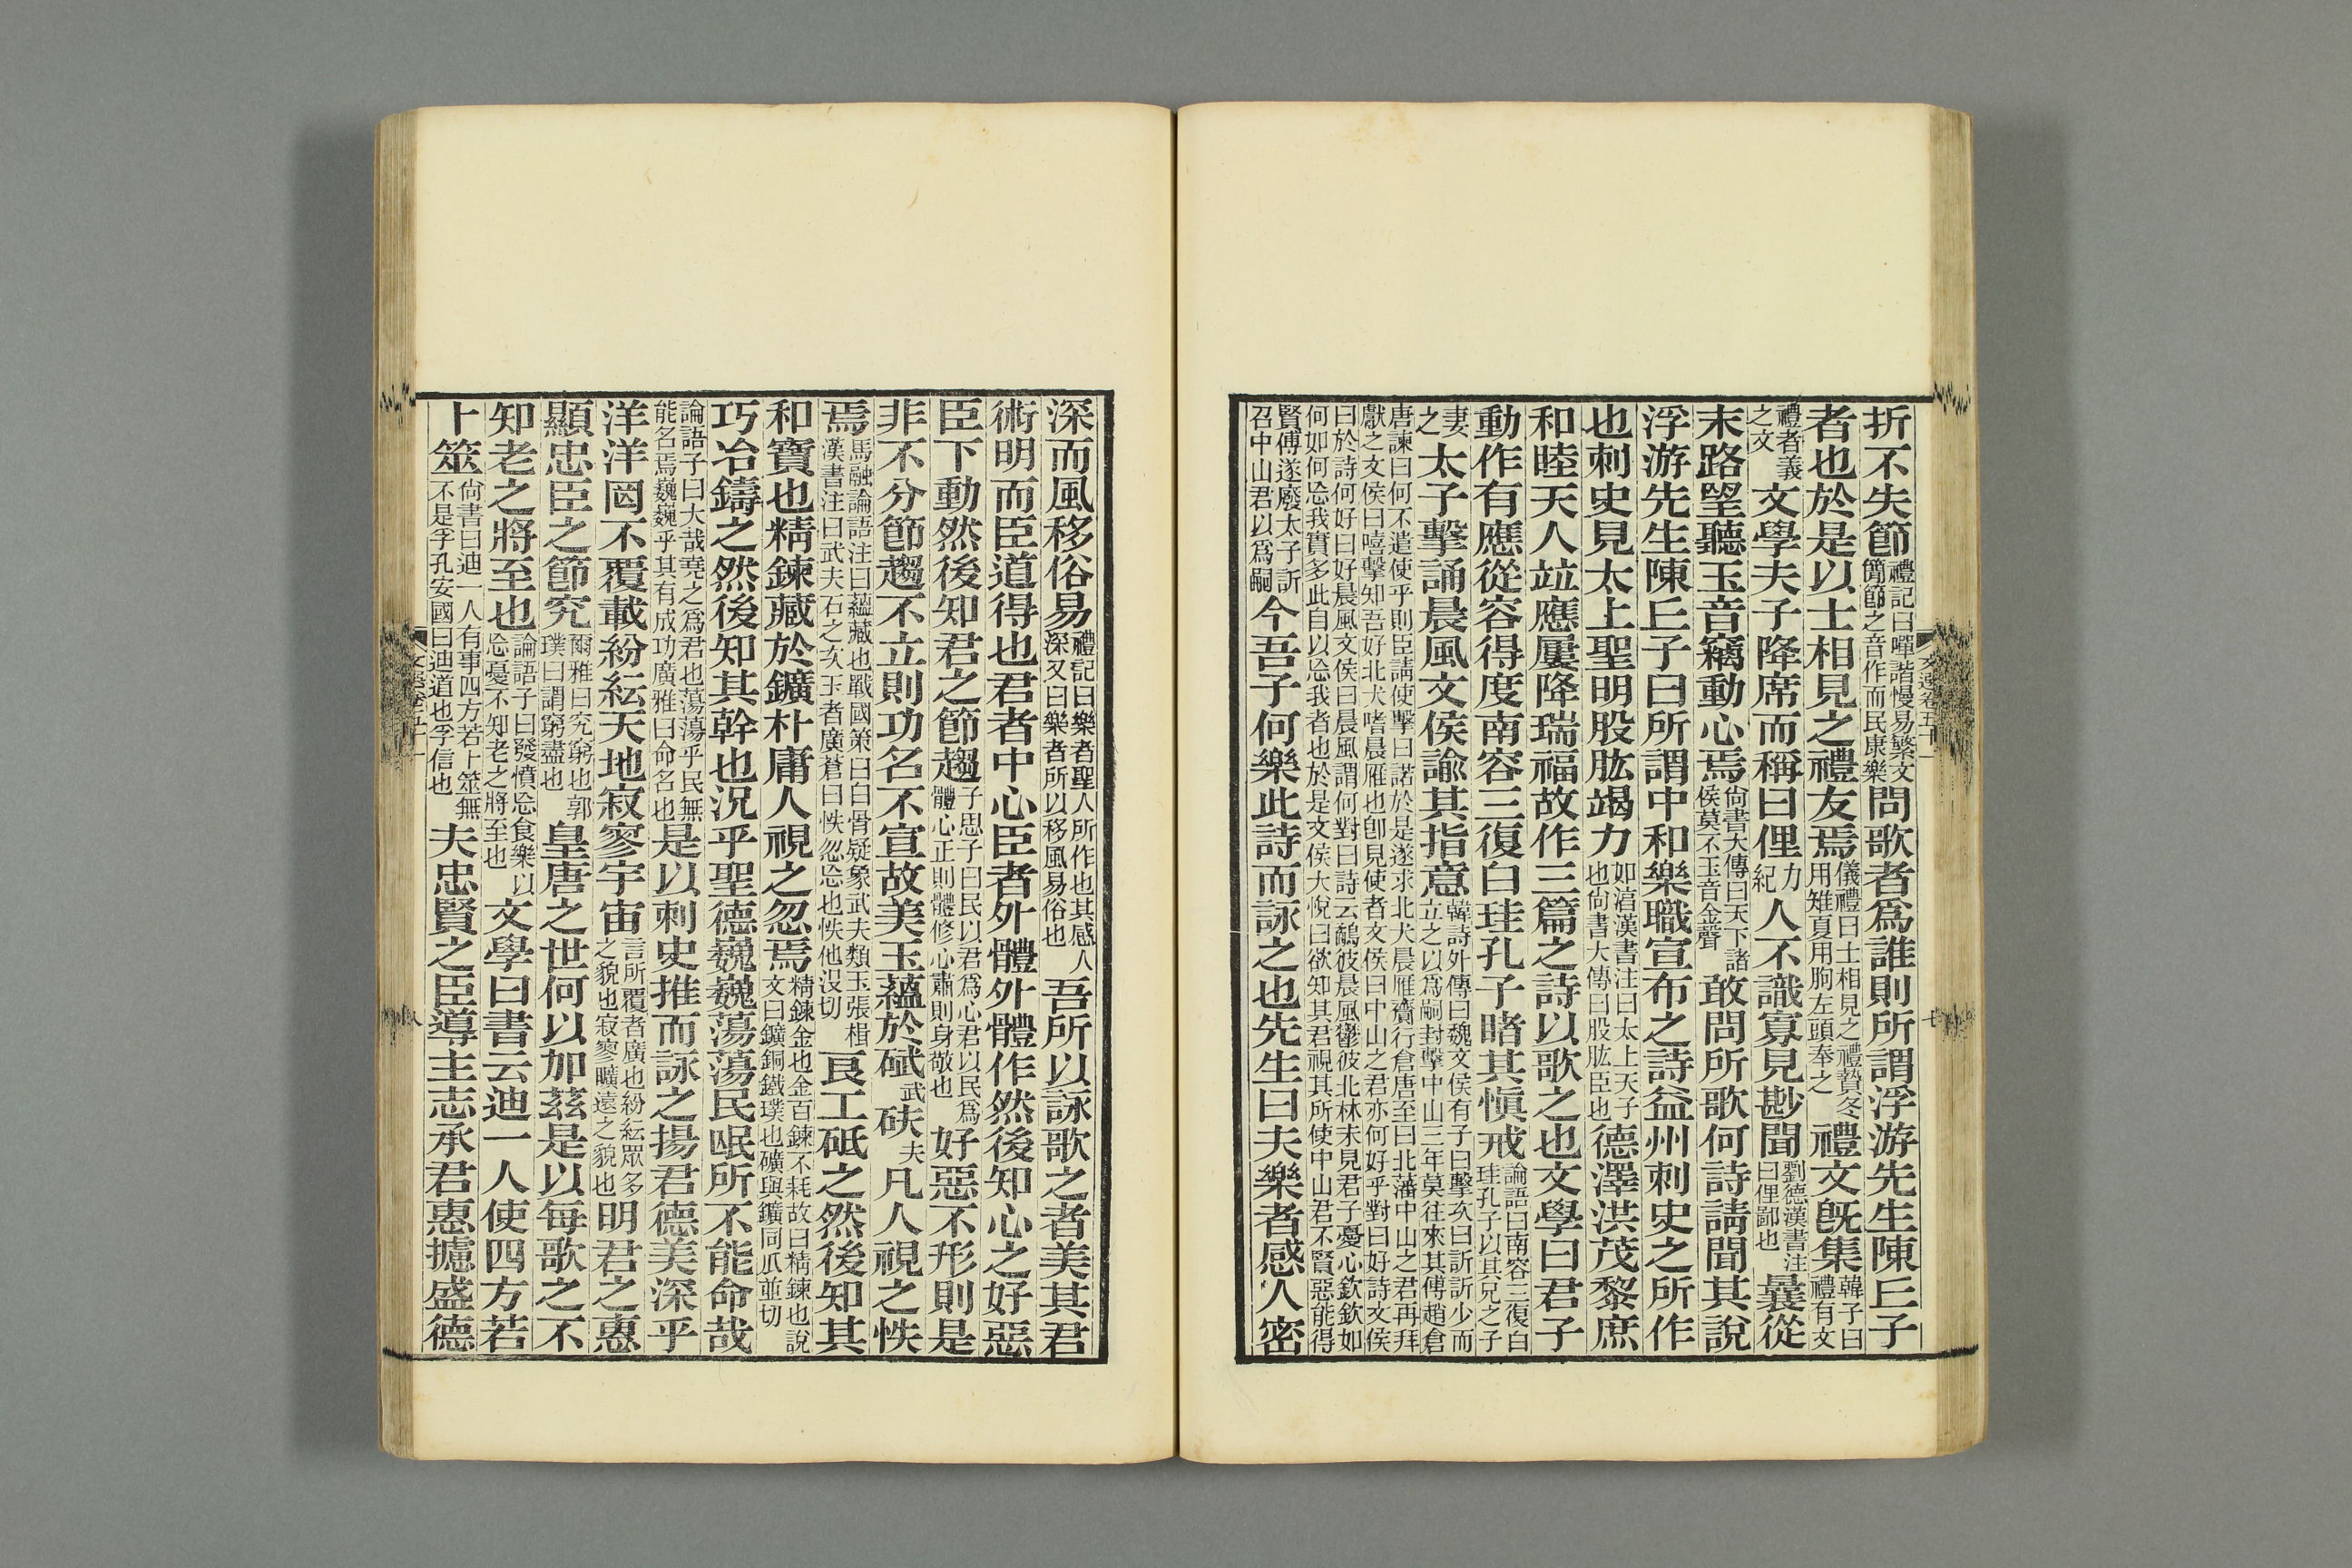 折不失節禮記曰嘽諧慢易繁文簡節之音作而民康樂問歌者爲誰則所謂浮游先生陳丘子
者也於是以士相見之禮友焉儀禮曰士相見之禮贄冬用雉夏用腒左頭奉之禮文既集韓子曰禮有文
禮者義之文文學夫子降席而稱曰俚力紀人不識寡見尠聞劉德漢書注曰俚鄙也曩從
末路望聽玉音竊動心焉尚書大傳曰天下諸侯莫不玉音金聲敢問所歌何詩請聞其說
浮游先生陳丘子曰所謂中和樂職宣布之詩益州刺史之所作
也刺史見太上聖明股肱竭力如淳漢書注曰太上天子也尚書大傳曰股肱臣也德澤洪茂黎庶
和睦天人竝應屢降瑞福故作三篇之詩以歌之也文學曰君子
動作有應從容得度南容三復白珪孔子睹其慎戒論語曰南容三復白珪孔子以其兄之子
妻之太子擊誦晨風文侯諭其指意韓詩外傳曰魏文侯有子曰擊次曰訢訢少而立之以爲嗣封擊中山三年莫往來其傅趙倉
唐諫曰何不遣使乎則臣請使擊曰諾於是遂求北犬晨雁齎行倉唐至曰北藩中山之君再拜獻之文侯曰嘻擊知吾好北犬嗜晨雁也卽見使者文侯曰中山之君亦何好乎對曰好詩文侯
曰於詩何好曰好晨風文侯曰晨風謂何對曰詩云鴥彼晨風鬱彼北林未見君子憂心欽欽如何如何忘我實多此自以忘我者也於是文侯大悅曰欲知其君視其所使中山君不賢惡能得
賢傅遂廢太子訢召中山君以爲嗣今吾子何樂此詩而詠之也先生曰夫樂者感人密
文選卷五十一
七
深而風移俗易禮記曰樂者聖人所作也其感人深又曰樂者所以移風易俗也吾所以詠歌之者美其君
術明而臣道得也君者中心臣者外體外體作然後知心之好惡
臣下動然後知君之節趨子思子曰民以君爲心君以民爲體心正則體修心肅則身敬也好惡不形則是
非不分節趨不立則功名不宣故美玉蘊於碔武砆夫凡人視之怢
焉馬融論語注曰蘊藏也戰國策曰白骨疑象武夫類玉張楫漢書注曰武夫石之次玉者廣蒼曰怢忽忘也怢他沒切良工砥之然後知其
和寶也精鍊藏於鑛朴庸人視之忽焉精鍊金也金百鍊不耗故曰精鍊也說文曰鑛銅鐵璞也礦與鑛同瓜並切
巧冶鑄之然後知其幹也況乎聖德巍巍蕩蕩民氓所不能命哉
論語子曰大哉堯之爲君也蕩蕩乎民無能名焉巍巍乎其有成功廣雅曰命名也是以刺史推而詠之揚君德美深乎
洋洋罔不覆載紛紜天地寂寥宇宙言所覆者廣也紛紜眾多之貌也寂寥曠遠之貌也明君之惠
顯忠臣之節究爾雅曰究窮也郭璞曰謂窮盡也皇唐之世何以加茲是以每歌之不
知老之將至也論語子曰發憤忘食樂以忘憂不知老之將至也文學曰書云迪一人使四方若
卜筮尚書曰迪一人有事四方若卜筮無不是孚孔安國曰迪道也孚信也夫忠賢之臣導主志承君惠攄盛德
文選卷五十一
八